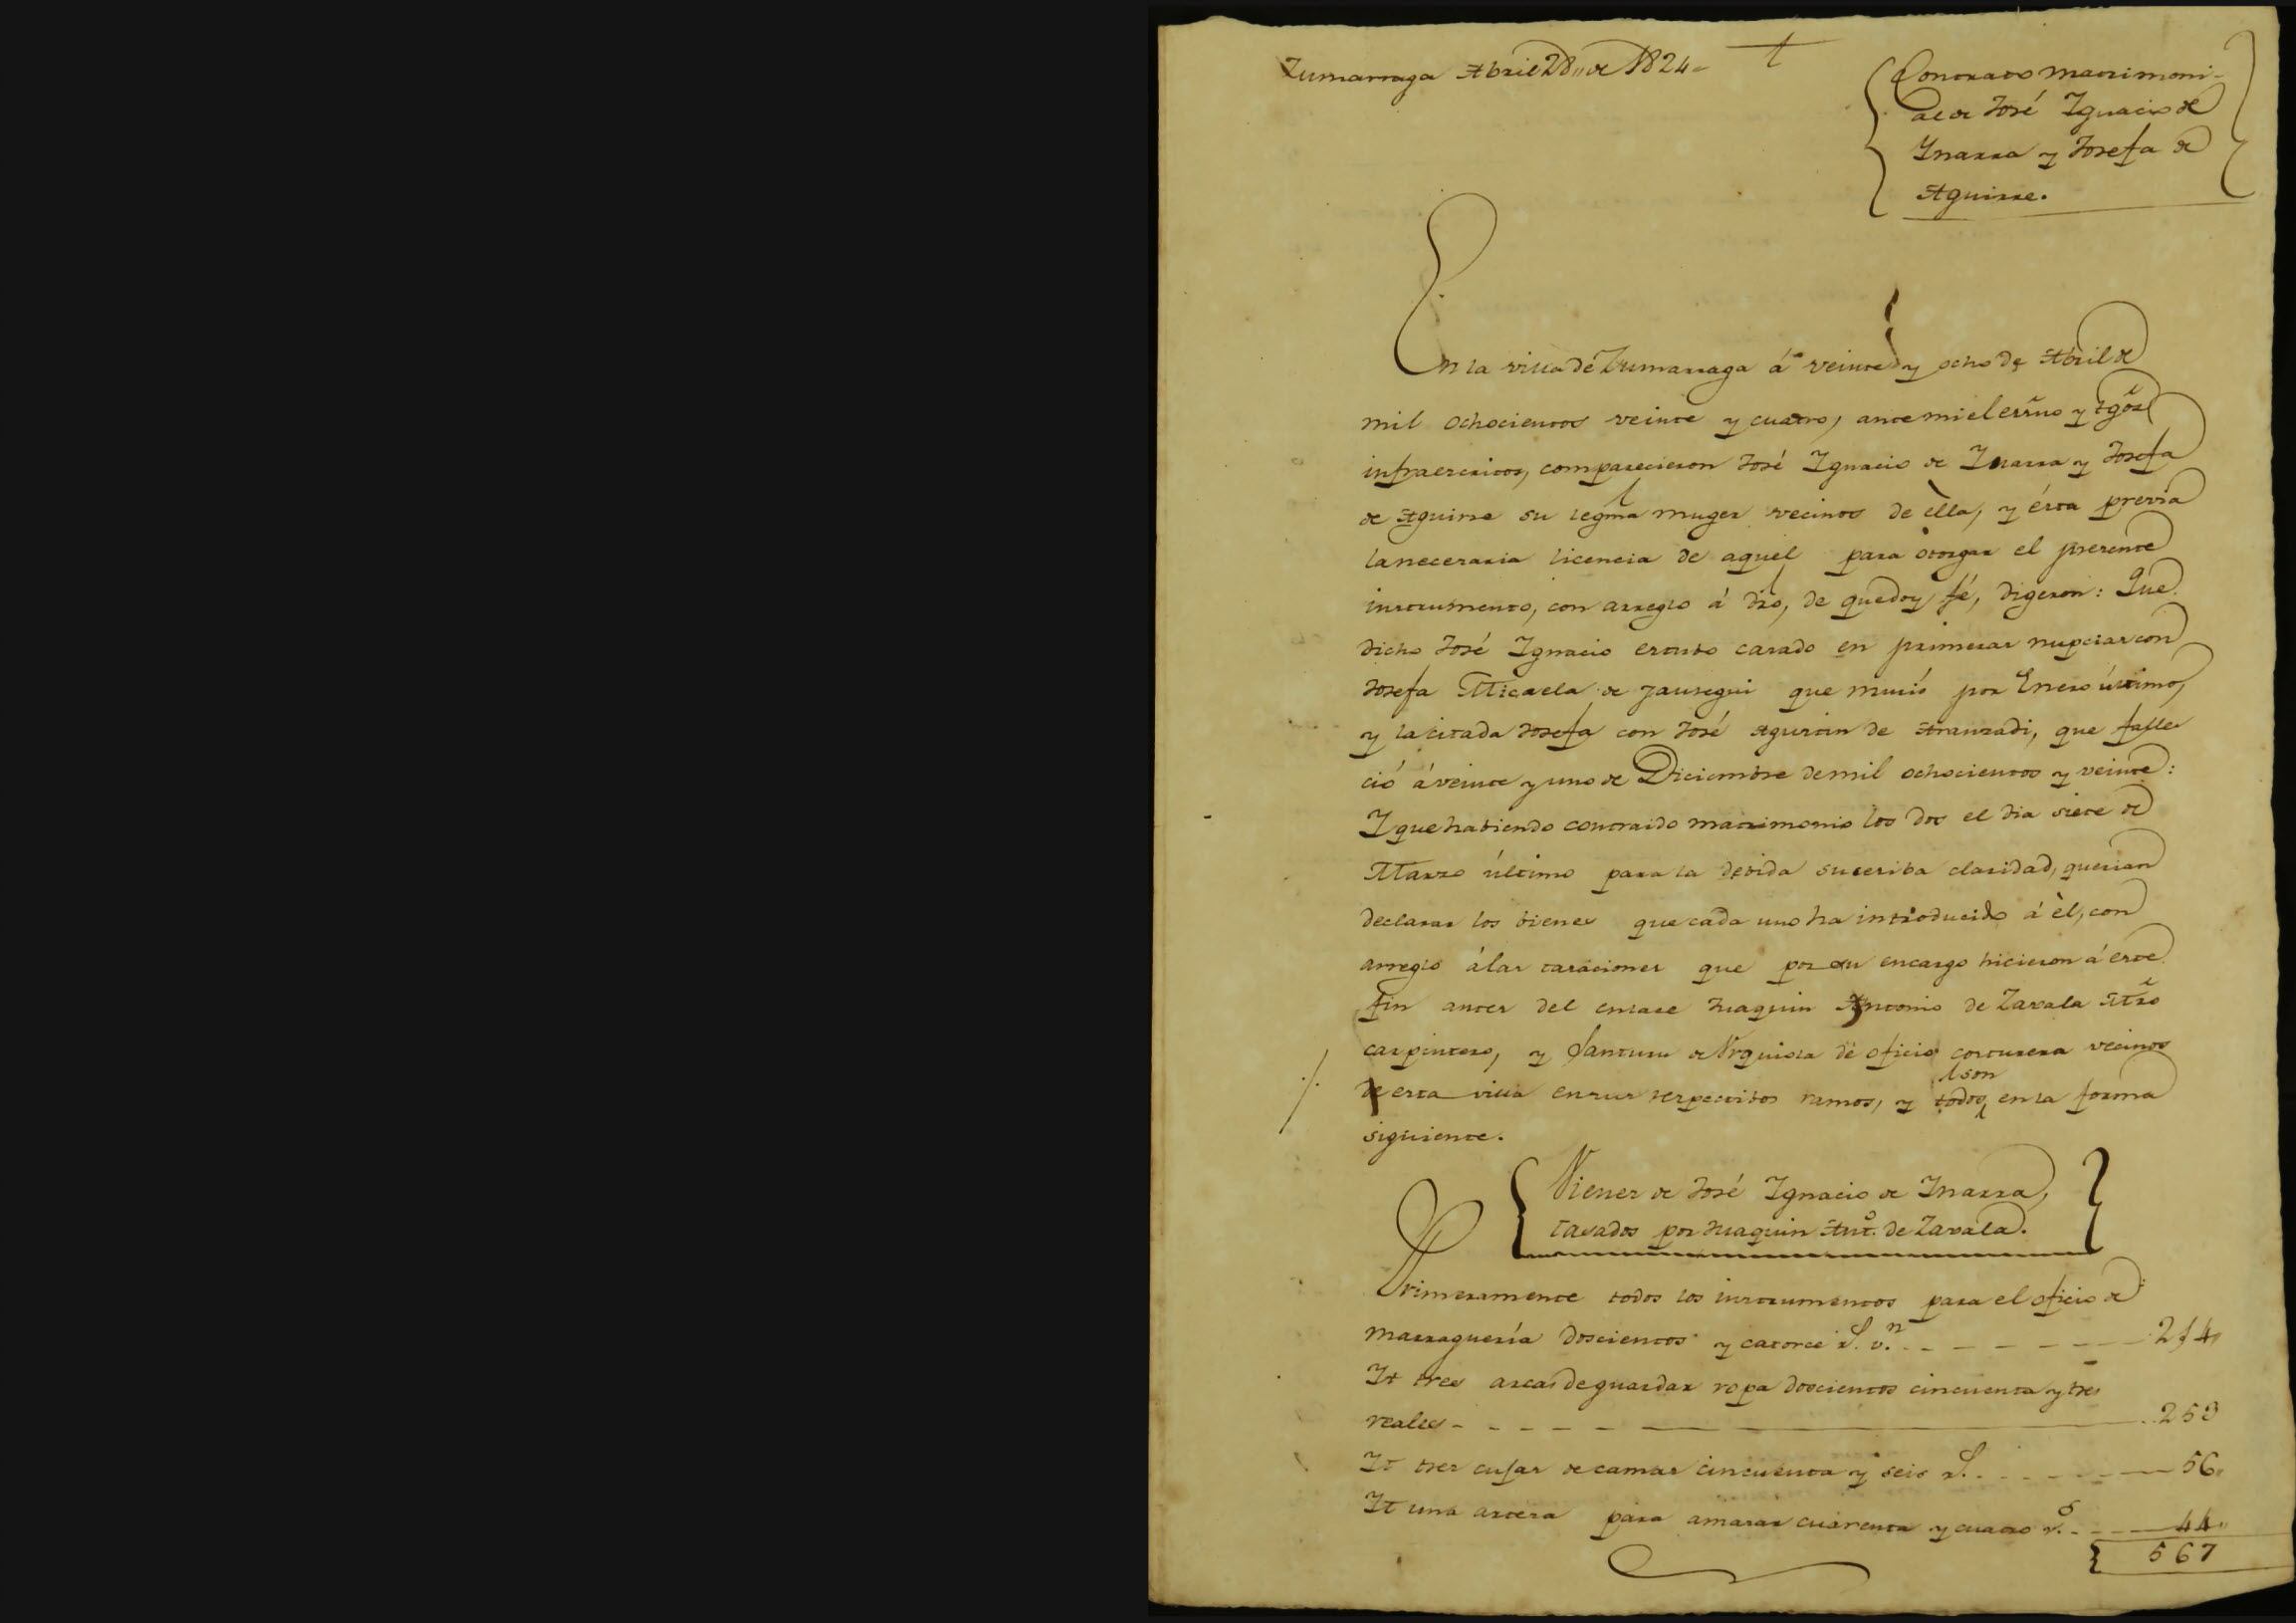 Zumarraga Abril 28,, de 1824-
Contrato matrimoni-
al de José Ignacio de
Ynarra y Josefa de
Aguirre.
En la villa de Zumarraga á veinte y ocho de Abril de
mil ochocientos veinte y cuatro, ante mi el essno y tgos
infraescritos, comparecieron José Ignacio de Ynarra y Josefa
de Aguirre su legma muger vecinos de ella, y ésta previa
la necesaria licencia de aquel para otorgar el presente
instrumento, con arreglo á dro, de que doy fé, digeron: Que
dicho José Ignacio estubo casado en primeras nupcias con
Josefa Micaela de Jauregui que murió por Enero último,
y la citada Josefa con José Agustin de Aranzadi, que falle
ció á veinte y uno de Diciembre de mil ochocientos y veinte:
Y que habiendo contraido matrimonio los dos el dia siete de
Marzo último para la debida sucesiba claridad, querian
declarar los bienes que cada uno ha introducido á èl, con
arreglo á las tasaciones que por su encargo hicieron á este
fin antes del enlace Juaquin Antonio de Zavala Mro
carpintero, y de Urquiola de oficio costurera vecinos
de esta villa en sus respectibos ramos, y todos son en la forma
siguiente.
Vienes de José Ignacio de Ynarra,
tasados por Juaquin Anto. de Zavala.
Primeramente todos los instrumentos para el oficio de
marraguería doscientos y catorce rs. vn. 214,,
Yt tres arcas de guardar ropa doscientos cincuenta y tres
reales - - - - - 253
Yt tres cujas de camas cincuenta y seis rs. 56,,
Yt una artera para amasar cuarenta y cuatro rs. 44,,
567